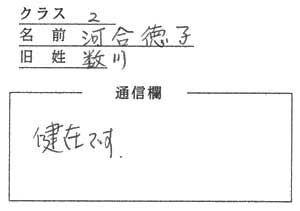 クラス 2
名前 河合徳子
旧姓 数川
通信欄
健在です.